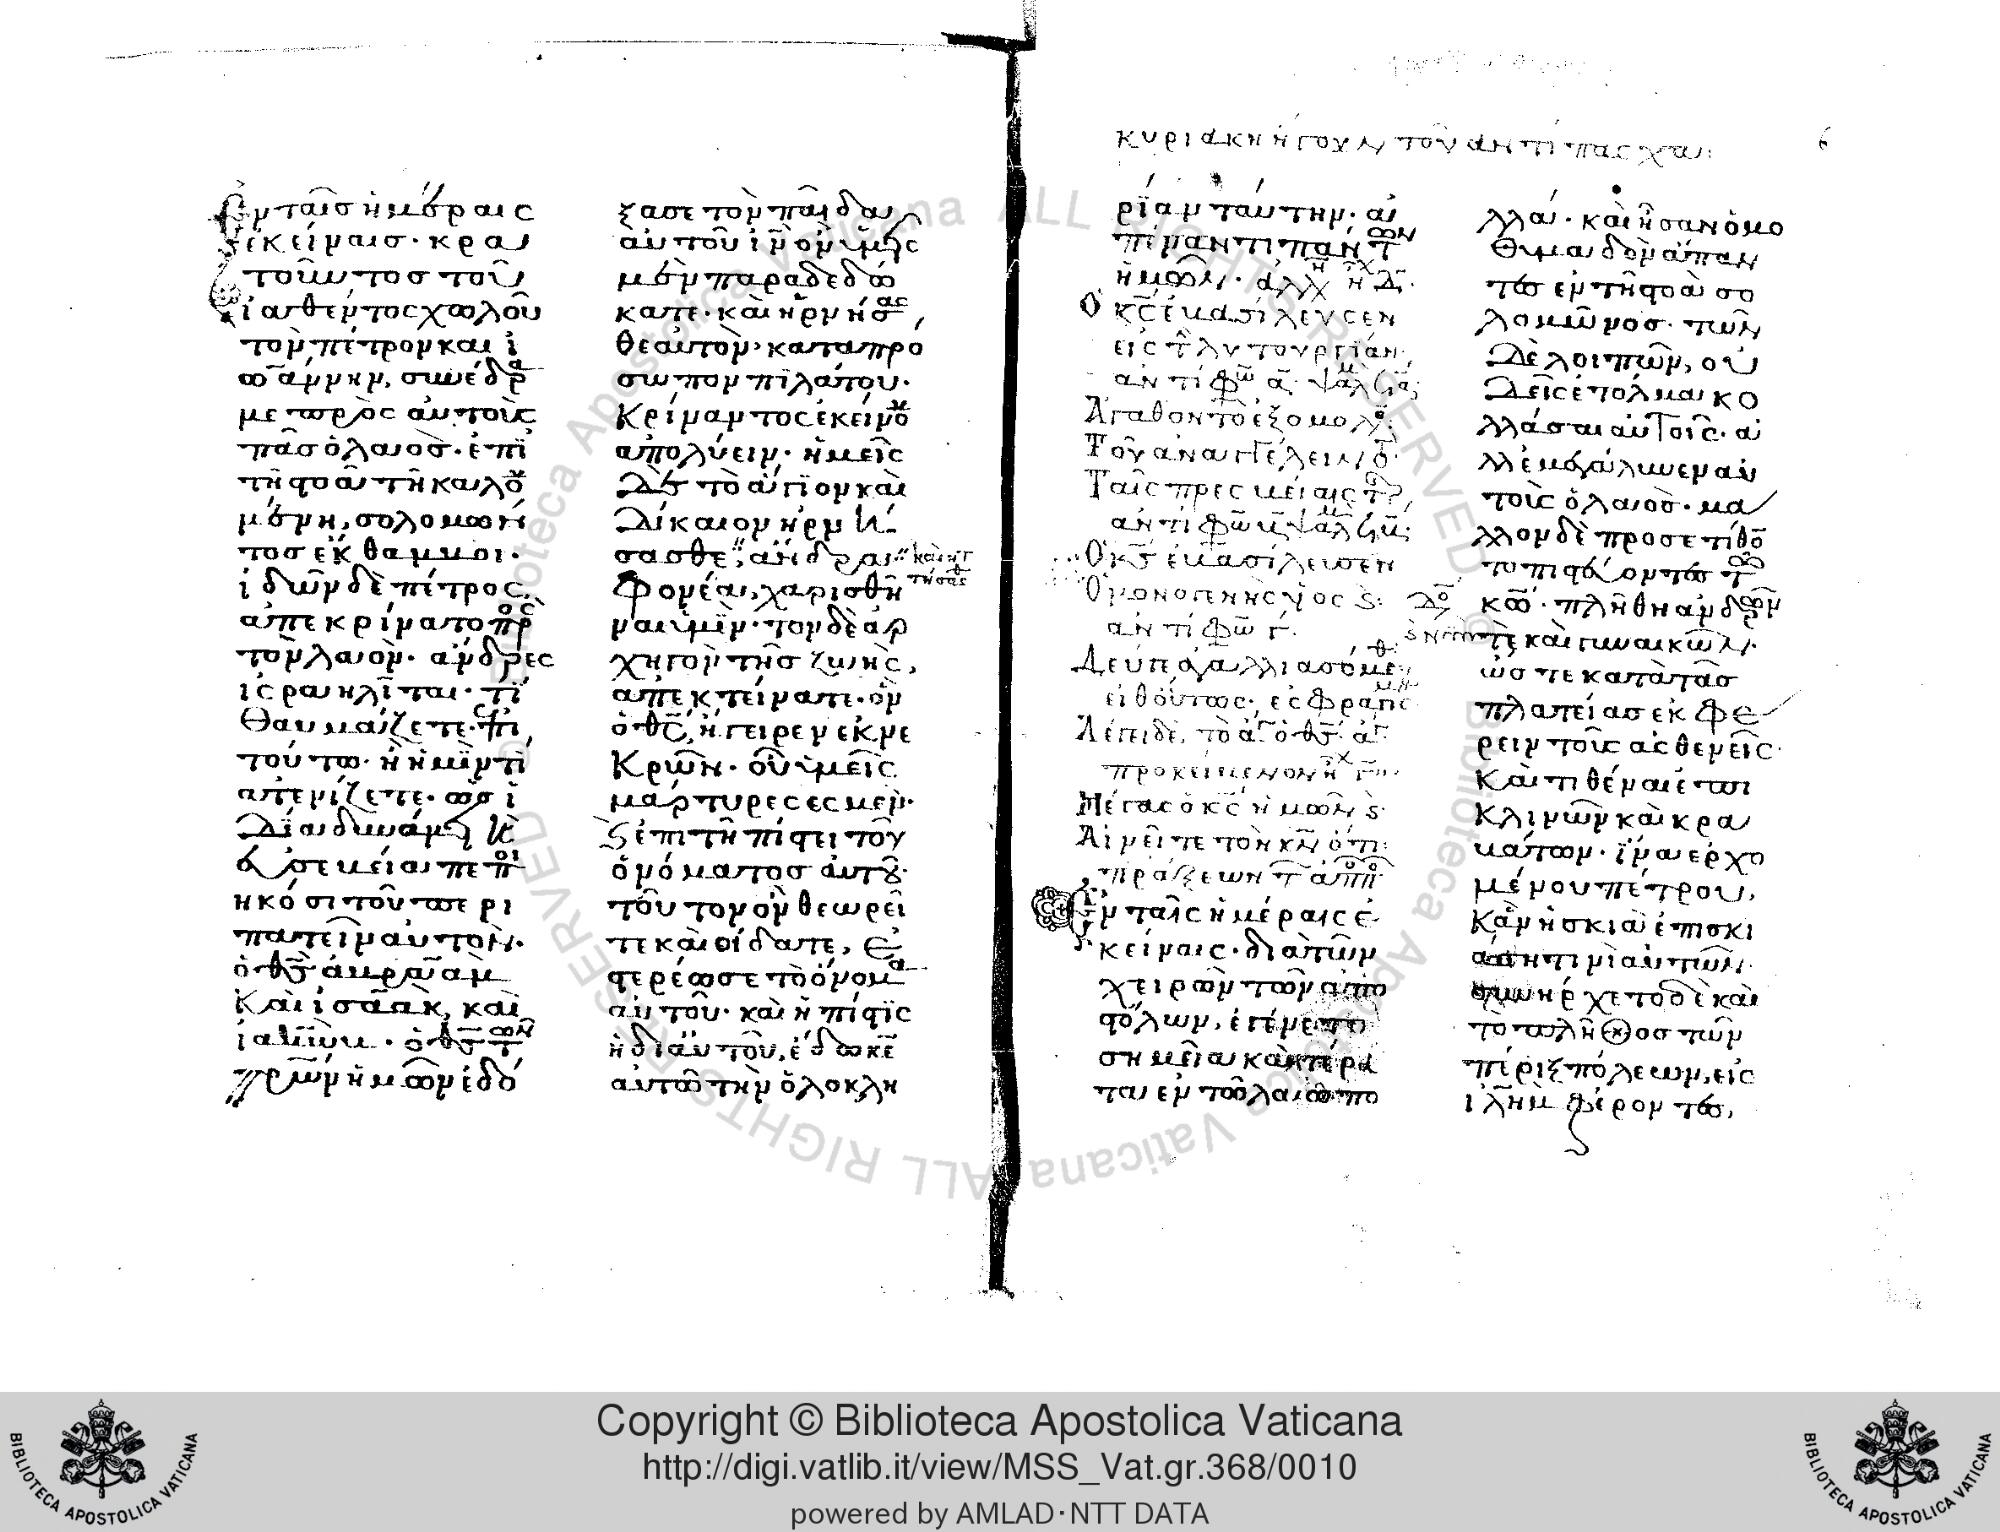 Ἐν ταῖς ἡμέραις
ἐκείναις· κρα
τοῦντος τοῦ
ἰαθέντος χωλοῦ
τὸν πέτρον καὶ ἰ
ωάννην, συνέδρα
με πρὸς αὐτοὺς
πᾶς ὁ λαὸς· ἐπὶ
τῆ στοᾶ τῆ καλου
μένη, σολομῶν
τος ἔκθαμβοι·
ἰδὼν δὲ πέτρος,
ἀπεκρίνατο πρὸς
τὸν λαὸν· ἄνδρες
ἰσραηλῖται· τί
θαυμάζετε ἐπὶ
τούτω· ἢ ἡμῖν τί
ἀτενίζετε· ὡς ἰ
δία δυνάμει ἢ
εὐσεβεία πεποι
ηκόσι τοῦ περι
πατεῖν αὐτὸν·
ὁ θς ἀβραὰμ
Καὶ ἰσαὰκ, καὶ
ἰακώβ· ὁ θς τῶν
πρων ἡμῶν ἐδό
ξασε τὸν παῖδα
αὐτοῦ ιν ὃν ὑμεῖς
μὲν παρεδώ
κατε· καὶ ἠρνήσασ
θε αὐτὸν· κατὰ πρό
σωπον πιλάτου·
Κρίναντος ἐκείνου
ἀπολύειν· ἡμεῖς
Δὲ τὸ ἅγιον καὶ
Δίκαιον ἠρνή
σασθε, ἄνδρα
καὶ ἠτ
τήσασθε
Φονέα, χαρισθῆ
ναι ὑμῖν· τὸν δὲ ἀρ
χηγὸν τῆς ζωῆς,
ἀπεκτείνατε· ὃν
ὁ θς, ἤγειρεν ἐκ νε
Κρῶν· οὗ ὑμεῖς
μάρτυρες ἐσμεν·
ϗ ἐπὶ τῆ πίστει τοῦ
ὀνόματος αὐτοῦ·
τοῦτον ὃν θεωρεῖ
τε καὶ οἴδατε, ἐ
στερέωσε τὸ ὄνομα
αὐτοῦ· καὶ ἡ πίστις
ἡ δι' αὐτοῦ, ἔδωκε
αὐτῶ τὴν ὁλοκλη
κυριακὴ ἤγουν τοῦ ἀντίπασχα:
6
ρίαν ταύτην· ἀ
πέναντι πάντων
ἡμῶν·
Ὁ κς ἐβασίλευσεν
εἰς τ λυτουργίαν
ἀντίφω α
Ἀγαθὸν τὸ ἐξομολ
Τοῦ ἀναγγέλειν
Ταῖς πρεσβείαις τ
ἀντίφω β
Ὁ κς ἐβασίλευσεν
Ὁ μονογενὴς υἱὸς
ἀντίφω γ
Δεῦτε ἀγαλλιασόμεθ
Μέγας ὁ κς ἡμῶν ϗ
Αἰνεῖτε τὸν κν ὅτι
πράξεων τ ἀπο
Ἐν ταῖς ἡμέραις ἐ
κείναις· διὰ τῶν
χειρῶν τῶν ἀπο
στόλων, ἐγένετο
σημεῖα καὶ τέρα
τα ἐν τῶ λαῶ πο
λλὰ· καὶ ἦσαν ὁμο
θυμαδὸν ἅπαν
τες ἐν τῆ στοᾶ σο
λομῶνος· τῶν
Δὲ λοιπῶν, οὐ
Δεὶς ἐτόλμα κο
λλᾶσθαι αὐτοῖς· ἀ
λλ' ἐμεγάλυνεν αὐ
τοὺς ὁ λαὸς· μᾶ
λλον δὲ προσετίθον
το πιστεύοντες τῶ
κω· πλήθη ἀνδρῶν
τε καὶ γυναικῶν·
ὥστε κατὰ τὰς
πλατείας ἐκφέ
ρειν τοὺς ἀσθενεῖς·
Καὶ τιθέναι ἐπὶ
Κλινῶν καὶ κρα
βάτων· ἵνα ἐρχο
μένου πέτρου,
Κἂν ἡ σκιὰ ἐπισκι
άση τινὶ αὐτῶν·
συνήρχετο δὲ καὶ
τὸ πλῆθος τῶν
πέριξ πόλεων, εἰς
ἰλημ φέροντες,
Copyright © Biblioteca Apostolica Vaticana
http://digi.vatlib.it/view/MSS_Vat.gr.368/0010
powered by AMLAD·NTT DATA
BIBLIOTECA APOSTOLICA VATICANA
BIBLIOTECA APOSTOLICA VATICANA